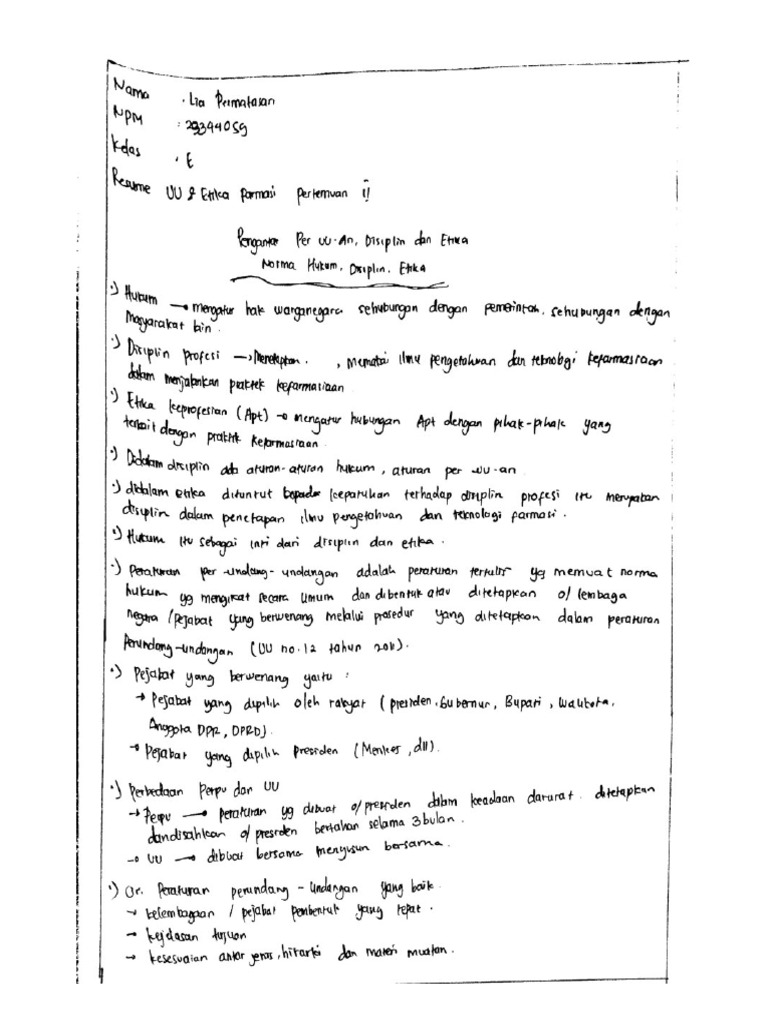 Nama : Lia Permatasari
NPM : 29344059
Kelas : E
Resume UU & Etika Farmasi Pertemuan ii
Pengantar Per UU-An, Disiplin dan Etika
Norma Hukum, Disiplin, Etika
•) Hukum → mengatur hak warganegara sehubungan dengan pemerintah, sehubungan dengan
Masyarakat lain.
•) Disiplin profesi → Menetapkan, Mematai ilmu pengetahuan dan teknologi kefarmasiaan
dalam menjalankan praktek kefarmasiaan
•) Etika keprofesian (Apt) → mengatur hubungan Apt dengan pihak-pihak yang
terkait dengan praktik kefarmasiaan
•) Didalam disciplin ada aturan-aturan hukum, aturan per-uu-an
•) didalam etika dituntut kepada kepatuhan terhadap disiplin profesi itu merupakan
disiplin dalam penetapan ilmu pengetahuan dan teknologi farmasi.
•) Hukum itu sebagai inti dari disiplin dan etika.
•) Peraturan per-undang-undangan adalah peraturan tertulis yg memuat norma
hukum yg mengikat secara umum dan dibentuk atau ditetapkan o/ lembaga
negara /pejabat yang berwenang melalui prosedur yang ditetapkan dalam peraturan
Perundang-undangan (UU no.12 tahun 2011).
•) Pejabat yang berwenang yaitu :
→ Pejabat yang dipilih oleh rakyat (presiden, Gubernur, Bupati, Walikota,
Anggota DPR, DPRD).
→ Pejabat yang dipilih presiden (Menkes, dll).
•) Perbedaan Perpu dan UU
→ Perpu → peraturan yg dibuat o/ presiden dalam keadaan darurat. ditetapkan
dan disahkan o/ presiden bertahan selama 3 bulan.
→ UU → dibuat bersama menyusun bersama.
•) Cr. Peraturan perundang-undangan yang baik
→ kelembagaan / pejabat pembentuk yang tepat.
→ kejelasan tujuan
→ kesesuaian antar jenis, hirarki dan materi muatan.